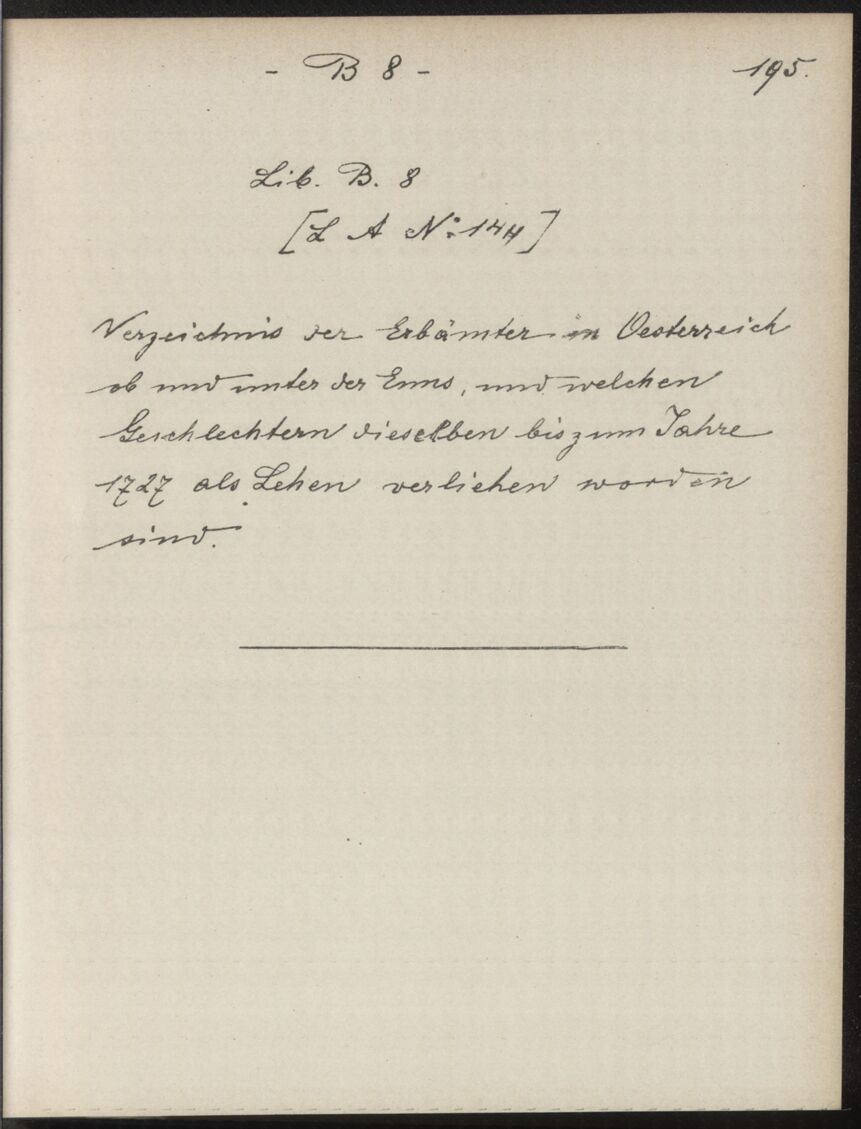 - B 8 -
195.
Lib. B. 8
[L A No. 144]
Verzeichnis der Erbämter in Oesterreich
ob und unter der Enns, und welchen
Geschlechtern dieselben bis zum Jahre
1727 als Lehen verliehen worden
sind.